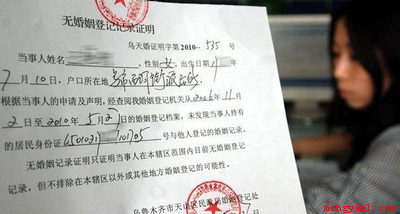 无婚姻登记记录证明
乌天婚证明字第2010-535号
当事人姓名 性别 女 出生日期 年
7月10日,户口所在地
根据当事人的申请及声明,经查阅我婚姻登记机关从2006年11月
2日至2010年5月27日的婚姻登记档案,未发现当事人持有
的居民身份证6501021 101705号与他人登记的婚姻记录。
无婚姻记录证明只证明当事人在本辖区范围内目前无婚姻登
记记录。但不排除在本辖区以外或其他地方婚姻登记的可能性。
乌鲁木齐市天山区民政局婚姻登记处
7日
mingyunl.com